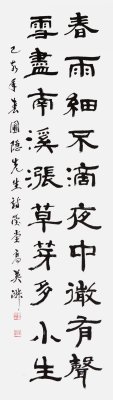 春雨細不滴夜中微有聲
雪盡南溪漲草芽多小生
己亥年春圃隱先生詩